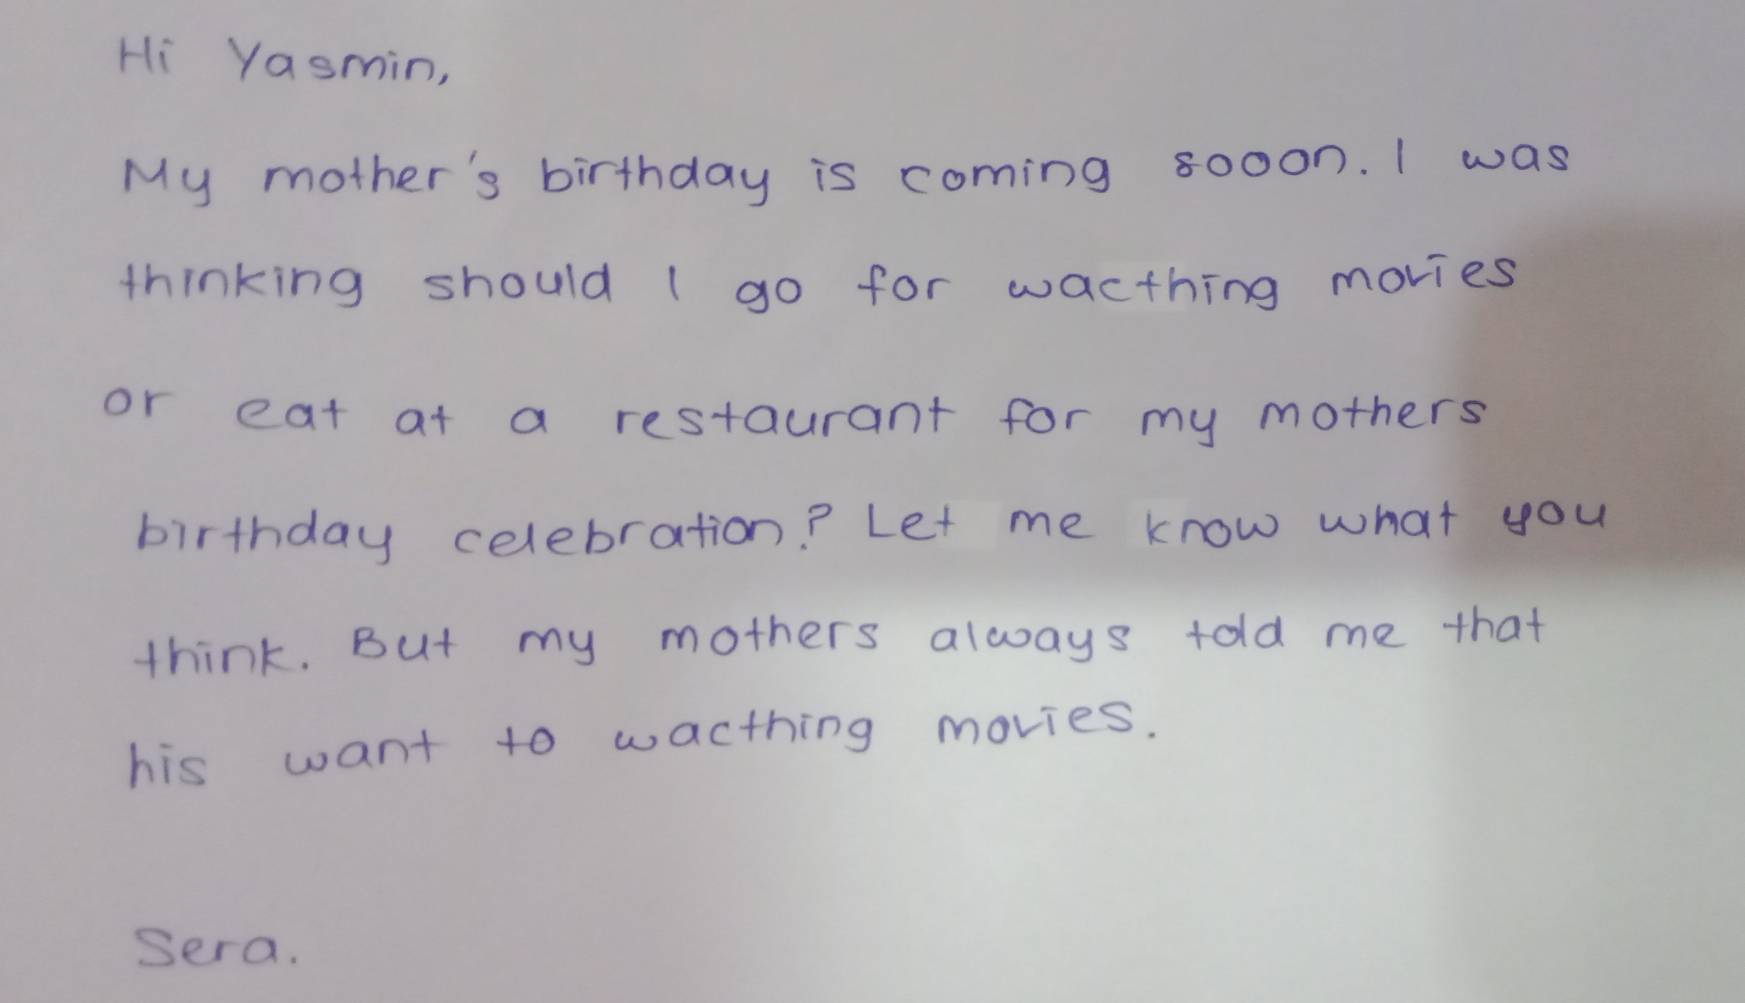 Hi Yasmin,
My mother's birthday is coming sooon. I was
thinking should I go for wacthing movies
or eat at a restaurant for my mothers
birthday celebration? Let me know what you
think. But my mothers always told me that
his want to wacthing movies.
Sera.